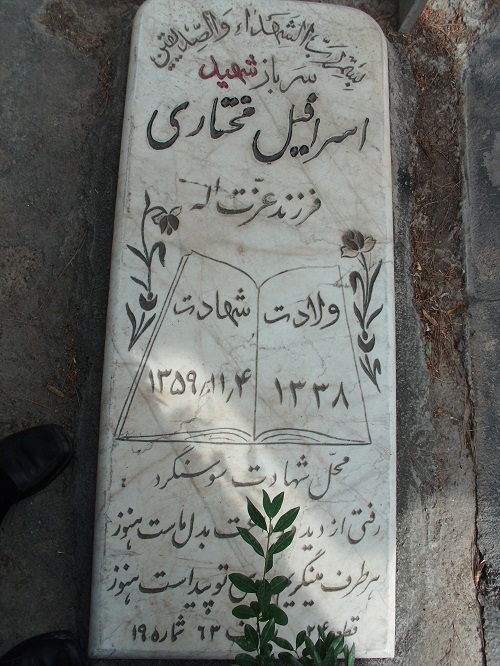 بسم رب الشهداء والصّدیقین
سرباز شهید
اسرافیل مختاری
فرزند عزّت اله
ولادت شهادت
۱۳۳۸ ۱۳۵۹٫۱۱٫۴
محلّ شهادت سوسنگرد
رفتی از دیده بدل ماست هنوز
هر طرف مینگریم توپیداست هنوز
قطعه ۲۴ ۶۳ شماره ۱۹